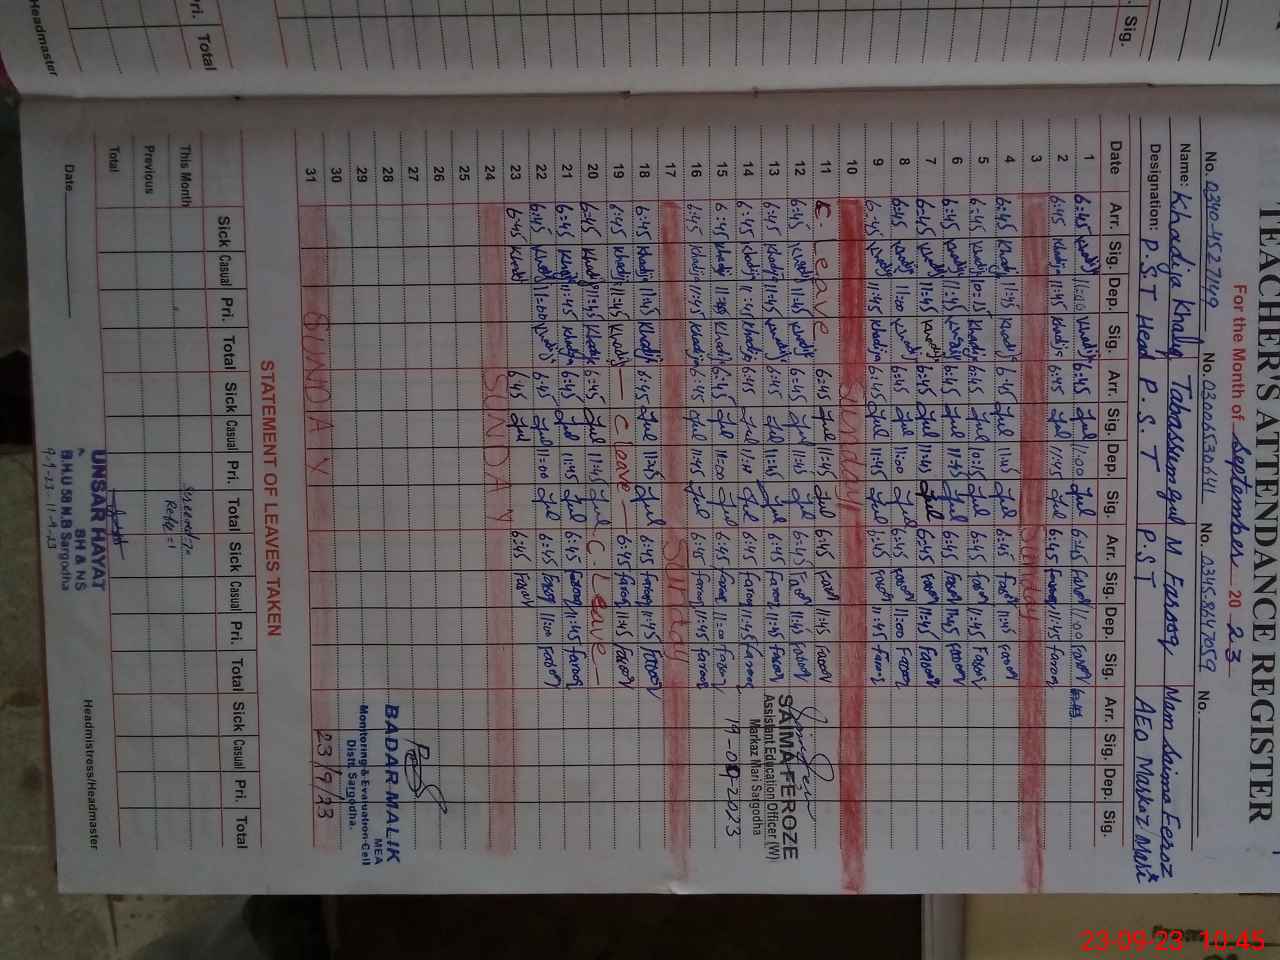 TEACHER'S ATTENDANCE REGISTER
For the Month of September 20 23
No. 0340-4527149 No. 03006530641 No. 0345-8647059 No.
Name: Khadija Khalid Tabassum gul M Farooq Mam Saima Feroz
Designation: P.S.T Head P. S. T P.S T AEO Markaz Mari
Date Arr. Sig. Dep. Sig. Arr. Sig. Dep. Sig. Arr. Sig. Dep. Sig. Arr. Sig. Dep. Sig.
1 6:45 Khadija 11:00 Khadija 6:45 Gul 11:00 Gul 6:45 Farooq 11:00 Farooq
2 6:45 Khadija 11:45 Khadija 6:45 Gul 11:45 Gul 6:45 Farooq 11:45 Farooq
3 Sunday
4 6:45 Khadija 11:45 Khadija 6:45 Gul 11:45 Gul 6:45 Farooq 11:45 Farooq
5 6:45 Khadija 10:15 Khadija 6:45 Gul 10:15 Gul 6:45 Farooq 11:45 Farooq
6 6:45 Khadija 11:45 Khadija 6:45 Gul 11:45 Gul 6:45 Farooq 11:45 Farooq
7 6:45 Khadija 11:45 Khadija 6:45 Gul 11:45 Gul 6:45 Farooq 11:45 Farooq
8 6:45 Khadija 11:00 Khadija 6:45 Gul 11:00 Gul 6:45 Farooq 11:00 Farooq
9 6:45 Khadija 11:45 Khadija 6:45 Gul 11:45 Gul 6:45 Farooq 11:45 Farooq
10 Sunday
11 C. Leave 6:45 Gul 11:45 Gul 6:45 Farooq 11:45 Farooq
12 6:45 Khadija 11:45 Khadija 6:45 Gul 11:45 Gul 6:45 Farooq 11:45 Farooq
13 6:45 Khadija 11:45 Khadija 6:45 Gul 11:45 Gul 6:45 Farooq 11:45 Farooq
14 6:45 Khadija 11:45 Khadija 6:45 Gul 11:45 Gul 6:45 Farooq 11:45 Farooq
15 6:45 Khadija Khadija 6:45 Gul 11:00 Gul 6:45 Farooq 11:00 Farooq
16 6:45 Khadija 11:45 Khadija 6:45 Gul 11:45 Gul 6:45 Farooq 11:45 Farooq
17 Sunday
18 6:45 Khadija 11:45 Khadija 6:45 Gul 11:45 Gul 6:45 Farooq 11:45 Farooq
19 6:45 Khadija 11:45 Khadija — C leave — 6:45 Farooq 11:45 Farooq
20 6:45 Khadija 11:45 Khadija 6:45 Gul 11:45 Gul — C. Leave —
21 6:45 Khadija 11:45 Khadija 6:45 Gul 11:45 Gul 6:45 Farooq 11:45 Farooq
22 6:45 Khadija 11:00 Khadija 6:45 Gul 11:00 Gul 6:45 Farooq 11:00 Farooq
23 6:45 Khadija 6:45 Gul 6:45 Farooq
24 SUNDAY
25
26
27
28
29
30
31 SUNDAY
SAIMA FEROZE
Assistant Education Officer (W)
Markaz Mari Sargodha
19-09-2023
BADAR MALIK
MEA
Monitoring & Evaluation Cell
Distt. Sargodha.
23/9/23
STATEMENT OF LEAVES TAKEN
Sick Casual Pri. Total Sick Casual Pri. Total Sick Casual Pri. Total Sick Casual Pri. Total
This Month
Previous
Total
UNSAR HAYAT
SH & NS
B.H.U 58 N.B Sargodha
9-9-23 - 11-9-23
Date
Headmistress/Headmaster
Sig.
Pri. Total
Headmaster
23-09-23 10:45